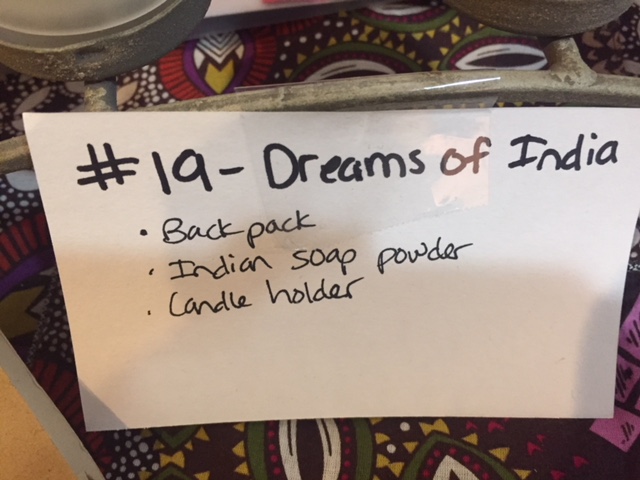 #19 - Dreams of India
• Backpack
• Indian soap powder
• Candle holder